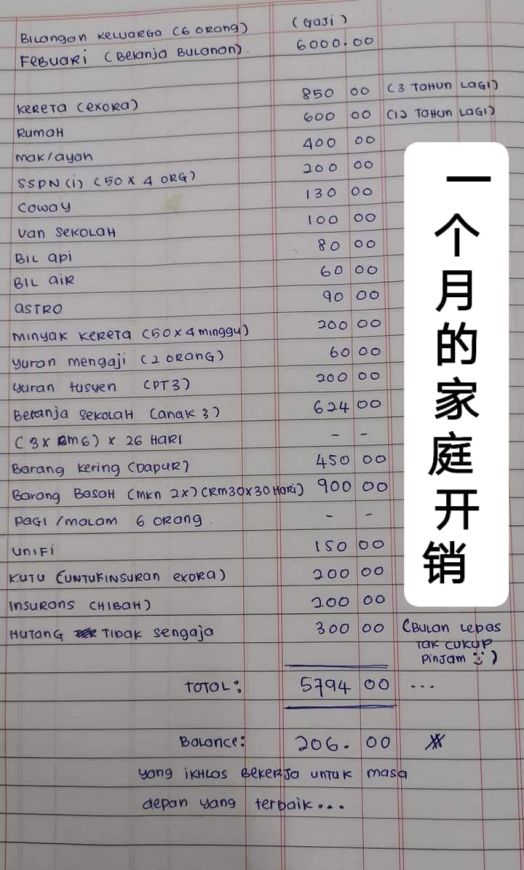 Bilangan keluarga (6 orang) (Gaji)
Febuari (Belanja Bulanan). 6000.00
kereta (exora) 850 00 (3 Tahun Lagi)
Rumah 600 00 (12 Tahun Lagi)
mak/ayah 400 00
SSPN(i) (50 x 4 org) 200 00
Coway 130 00
Van Sekolah 100 00
Bil api 80 00
Bil air 60 00
Astro 90 00
Minyak kereta (50x4minggu) 200 00
Yuran mengaji (2 orang) 60 00
Yuran tusyen (PT3) 200 00
Belanja Sekolah (anak 3) 624 00
(3x Rm6) x 26 Hari - -
Barang kering (Dapur) 450 00
Barang Basah (mkn 2x) (Rm30x30 Hari) 900 00
pagi /malam 6 orang. - -
unifi 150 00
Kutu (untukinsuran exora) 200 00
Insurans (Hibah) 200 00
Hutang Tidak sengaja 300 00 (Bulan Lepas
tak cukup
pinjam )
TOTAL: 5794 00 ...
Balance: 206. 00
yang ikhlas Bekerja untuk masa
depan yang terbaik...
一个月的家庭开销